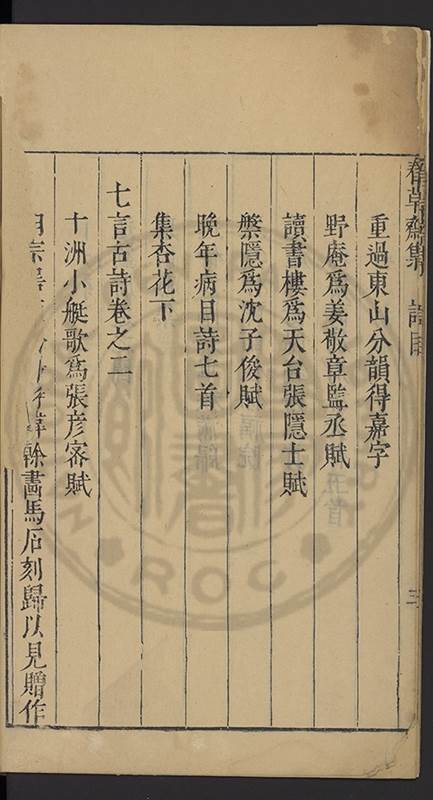 春草齋集 詩目 三
重過東山分韻得嘉字
野庵爲姜敬章監丞賦
讀書樓爲天台張隱士賦
槃隱爲沈子俊賦
晚年病目詩七首
集杏花下
七言古詩卷之二
十洲小艇歌爲張彦密賦
韓幹畵馬石刻歸以見贈作